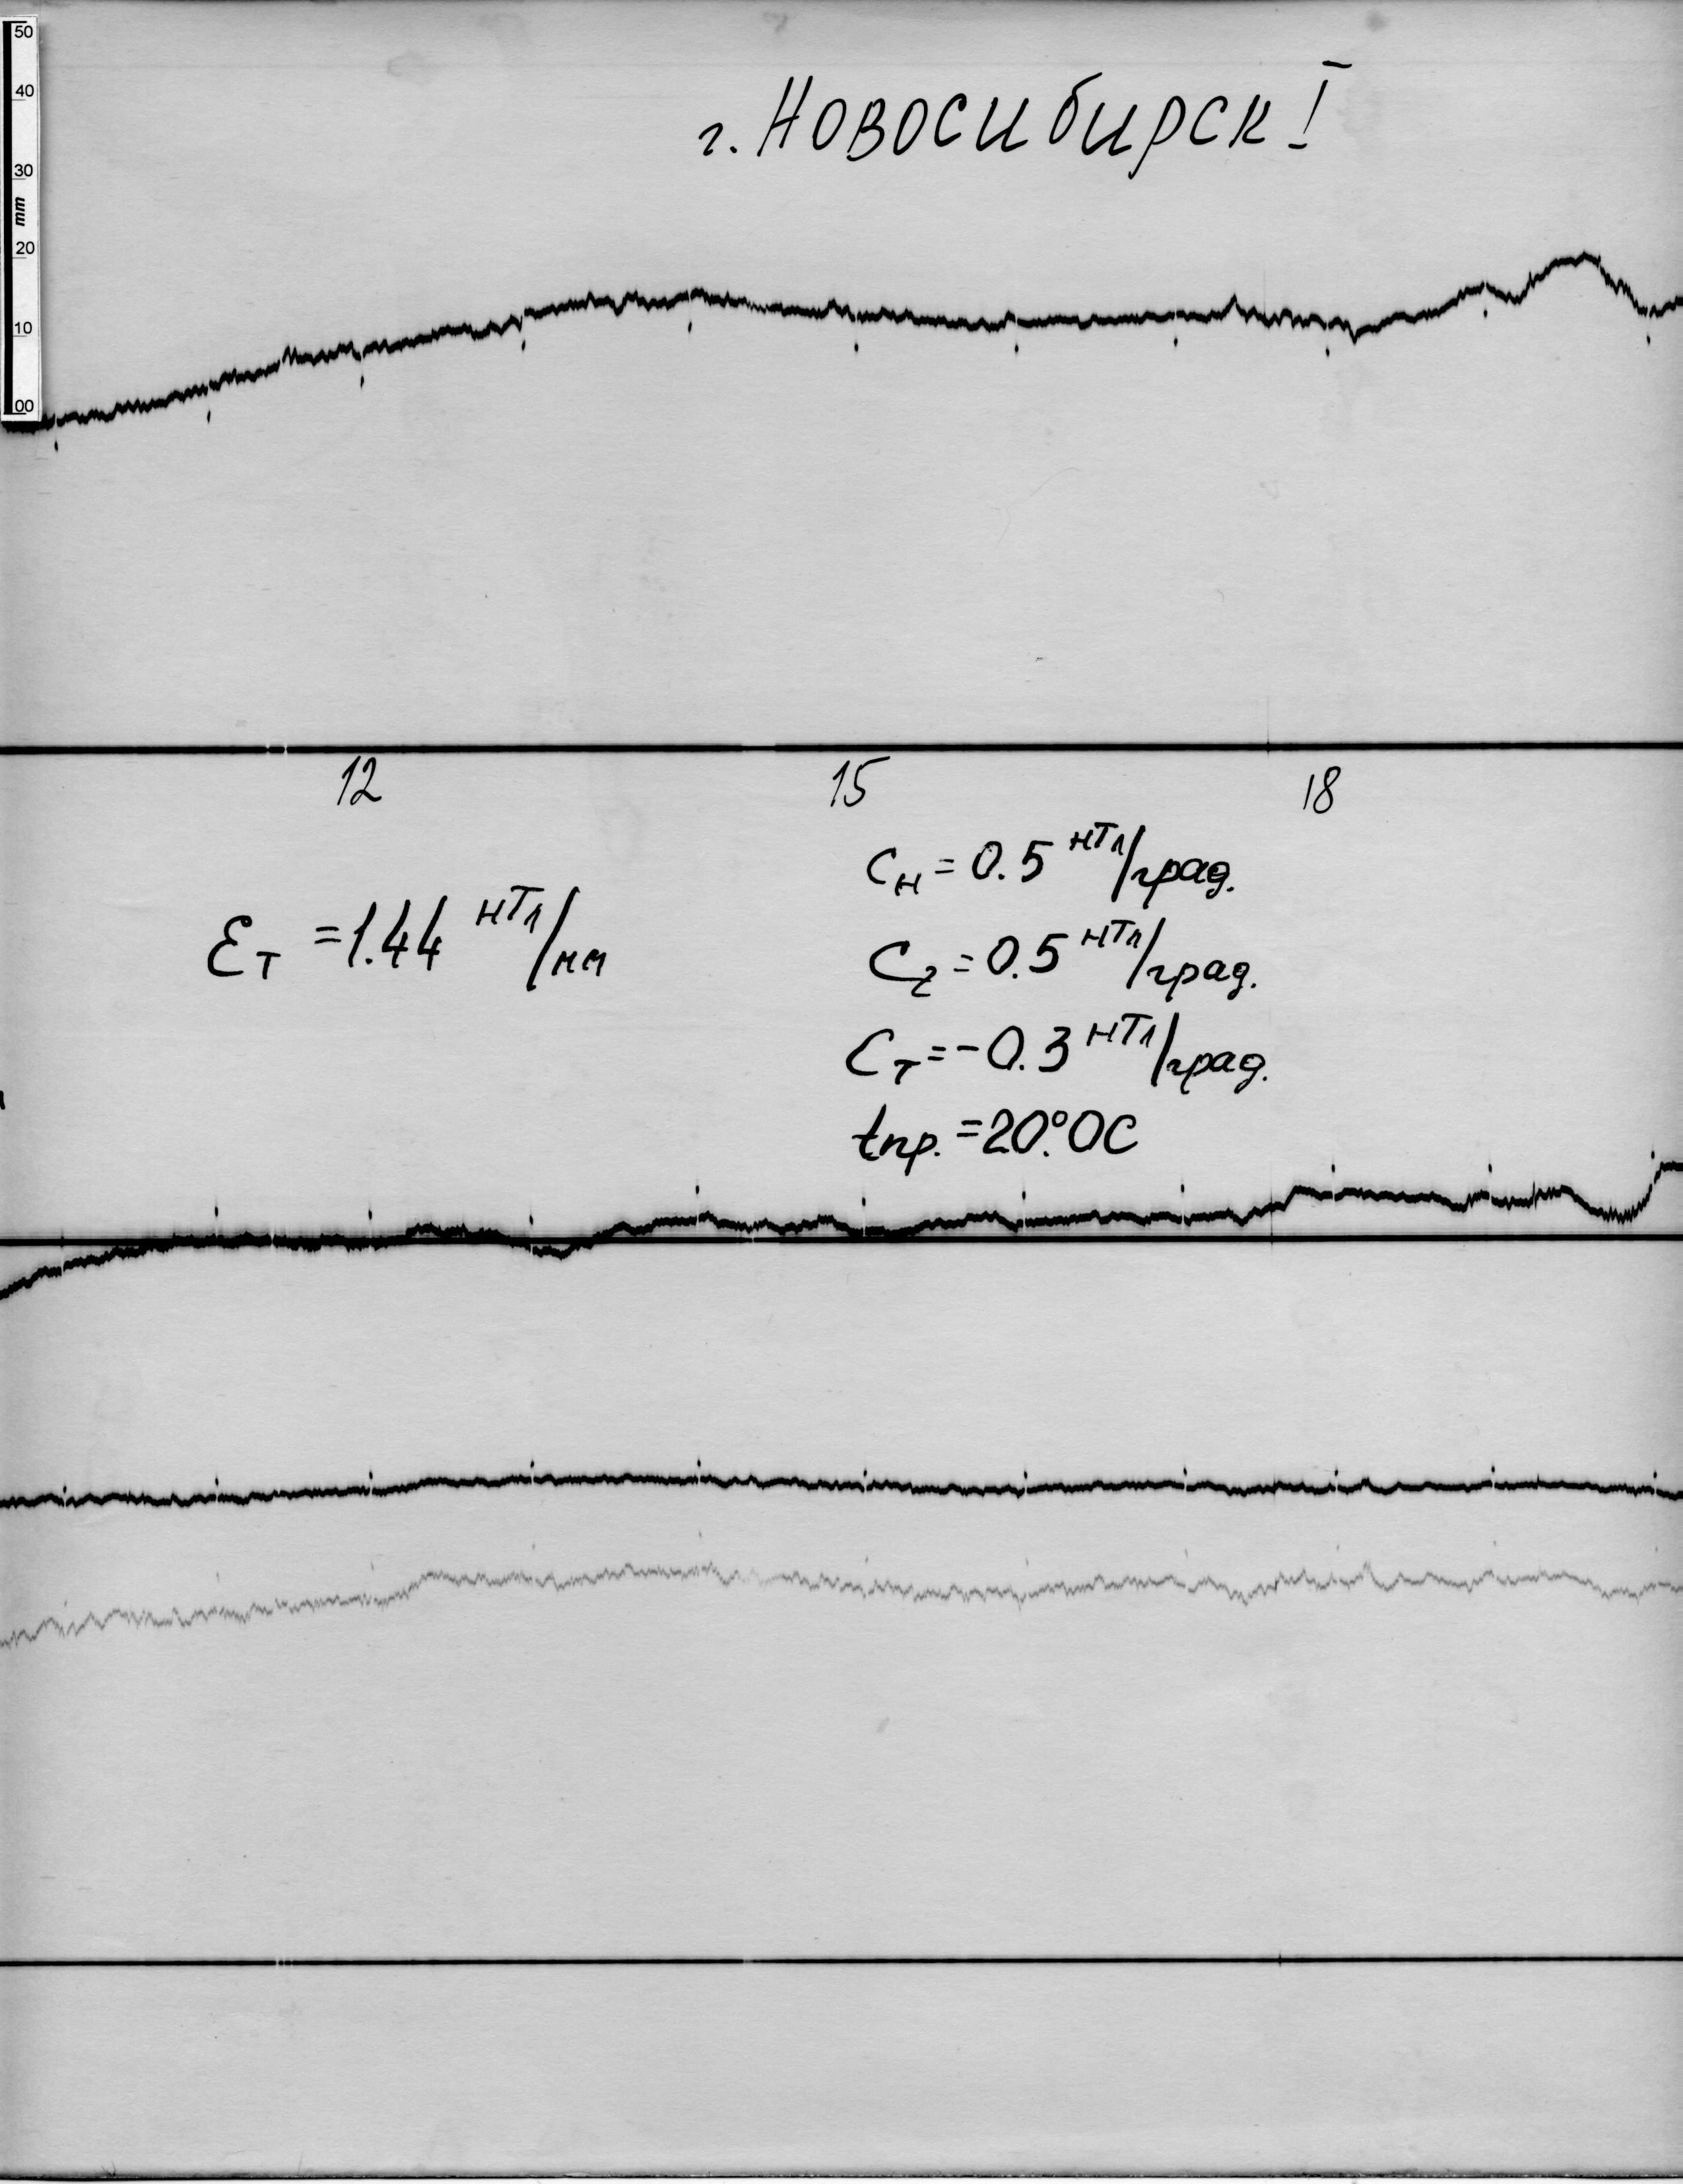 50
40
30
mm
20
10
00
г. Новосибирск I
12 15 18
Cн = 0.5 нТл/град.
Ɛт = 1.44 нТл/мм
Cz = 0.5 нТл/град.
Cт = -0.3 нТл/град.
tпр. = 20°.0C